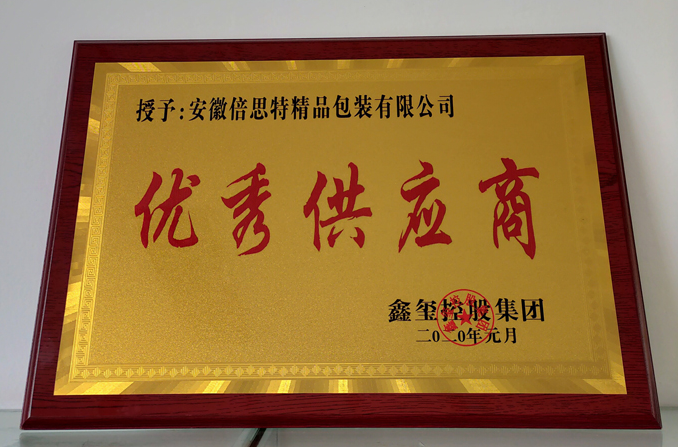 授予:安徽倍思特精品包装有限公司
优秀供应商
鑫玺控股集团
二0二0年元月